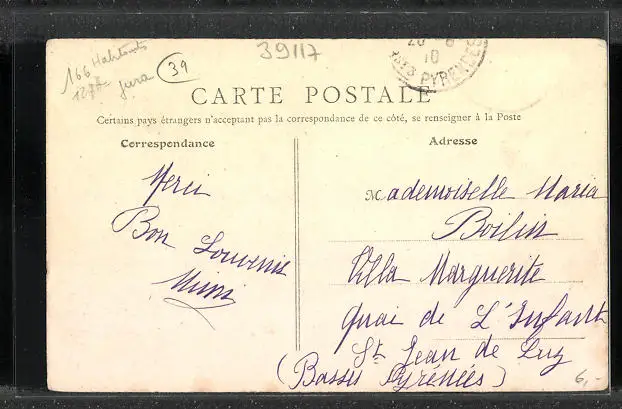 166 Habitants
Jura
39
39117
10
BSES PYRENEES
CARTE POSTALE
Certains pays étrangers n'acceptant pas la correspondance de ce côté, se renseigner à la Poste
Correspondance
Adresse
Merci
Bon Souvenir
Mimi
Mademoiselle Maria
Boilin
Villa Marguerite
Quai de L'Infante
St Jean de Luz
(Basses Pyrénées)
6,-